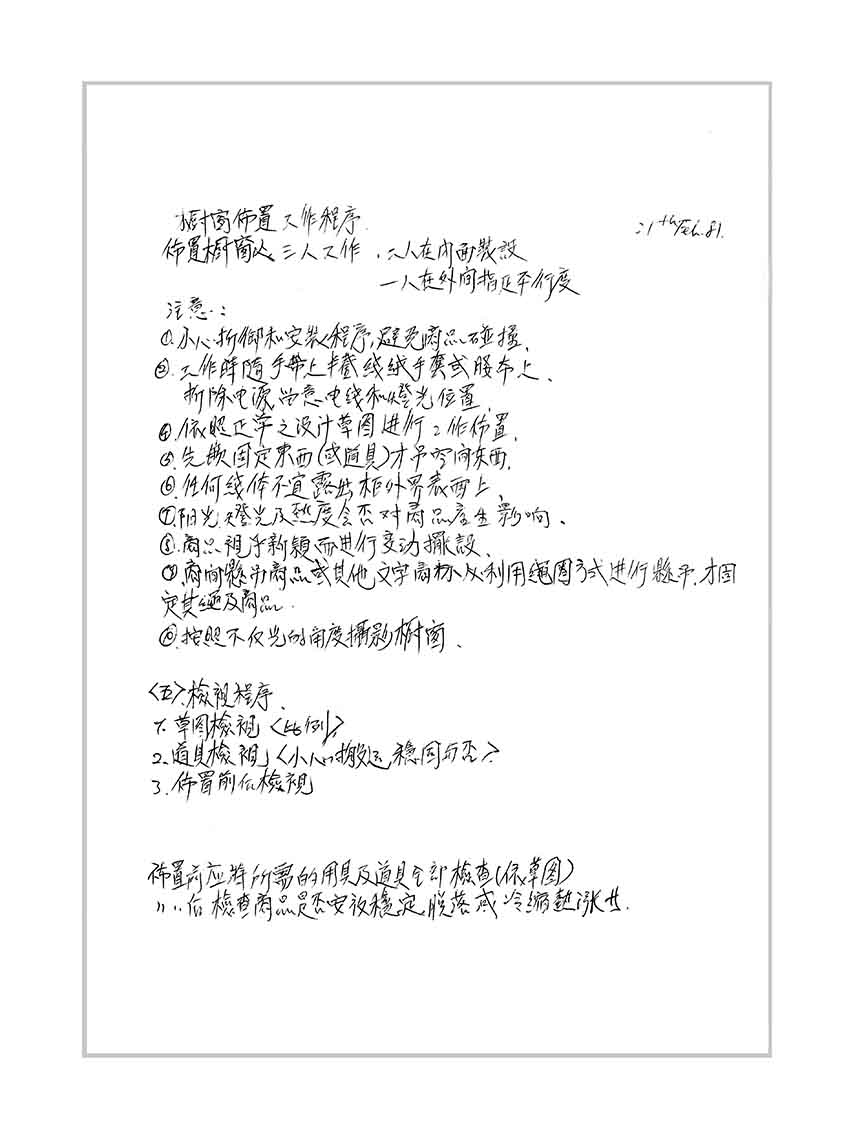 橱窗佈置工作程序.
21th Feb. 81.
佈置橱窗以三人工作, 二人在内面裝設
一人在外间指正平行度
注意:
①.小心折卸和安裝程序,避免商品碰撞.
②.工作時隨手帶上半截线絨手套或膠布上.
折除电源留意电线和燈光位置.
④.依照正草之设计草图进行工作佈置.
⑤.先做固定東西(或道具)才吊空间东西.
⑥.任何线体不宜露出柜外界表面上.
⑦.阳光燈光及熱度会否对商品產生影响.
⑧.商品視乎新穎而进行变动擺設.
⑨.商间懸吊商品或其他文字商标以利用繩圈方式进行懸平.才固
定其繩及商品.
⑩.按照不反光的角度攝影橱窗.
<五>.檢視程序.
1.草图檢視<比例>
2.道具檢視<小心搬运,穩固与否>
3.佈置前后檢視
佈置前应將所需的用具及道具全部檢查(依草图)
〃〃后檢查商品是否安放穩定,脱落或冷縮熱漲